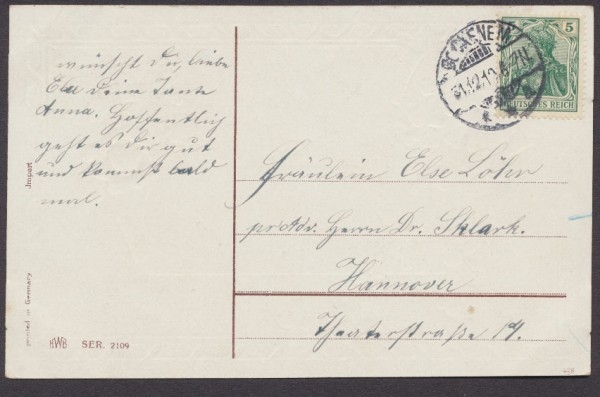 wünscht Dir, liebe
Else Deine Tante
Anna. Hoffentlich
geht es Dir gut
und kommst bald
mal.
Import
printed in Germany
HWB SER. 2109
5
DEUTSCHES REICH
BOCKENEM
31.12.10
Fräulein Else Löhr
pr. Adr. Herrn Dr. Sklark.
Hannover
Theaterstraße 14.